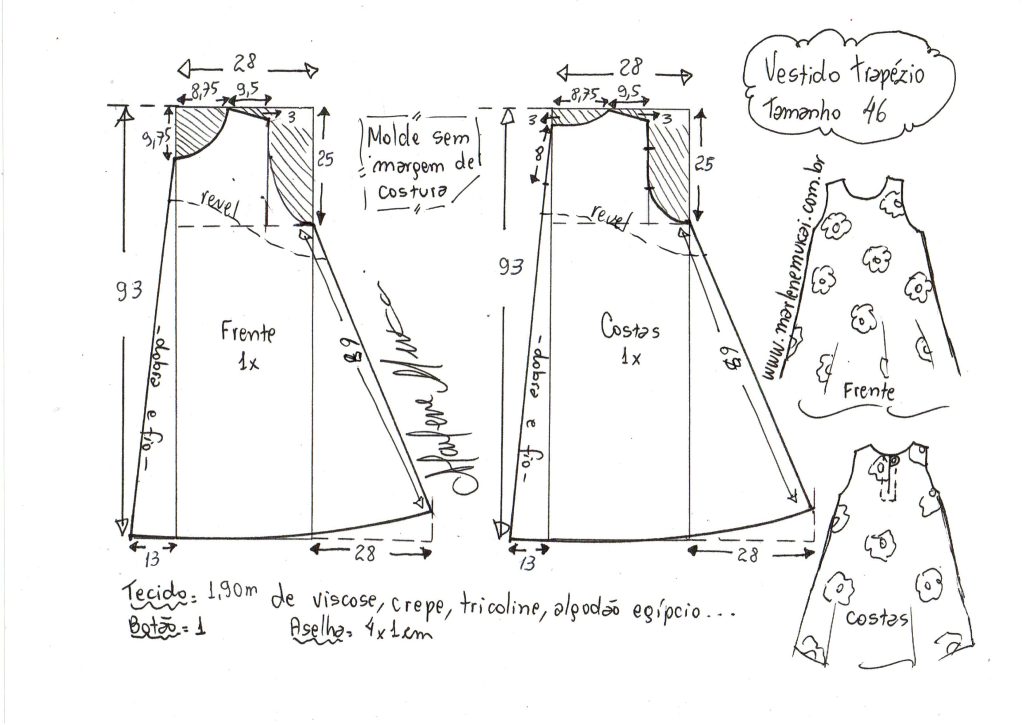 Vestido trapézio
Tamanho 46
28
8,75
9,5
3
9,75
25
revel
93
Frente
1x
-dobra e fio-
68
13
28
Molde sem
margem de
costura
Marlene Mukai
28
8,75
9,5
3
3
8
25
revel
93
Costas
1x
-dobra e fio-
68
13
28
www.marlenemukai.com.br
Frente
Costas
Tecido= 1,90m de viscose, crepe, tricoline, algodão egípcio...
Botão= 1
Aselha= 4x1cm